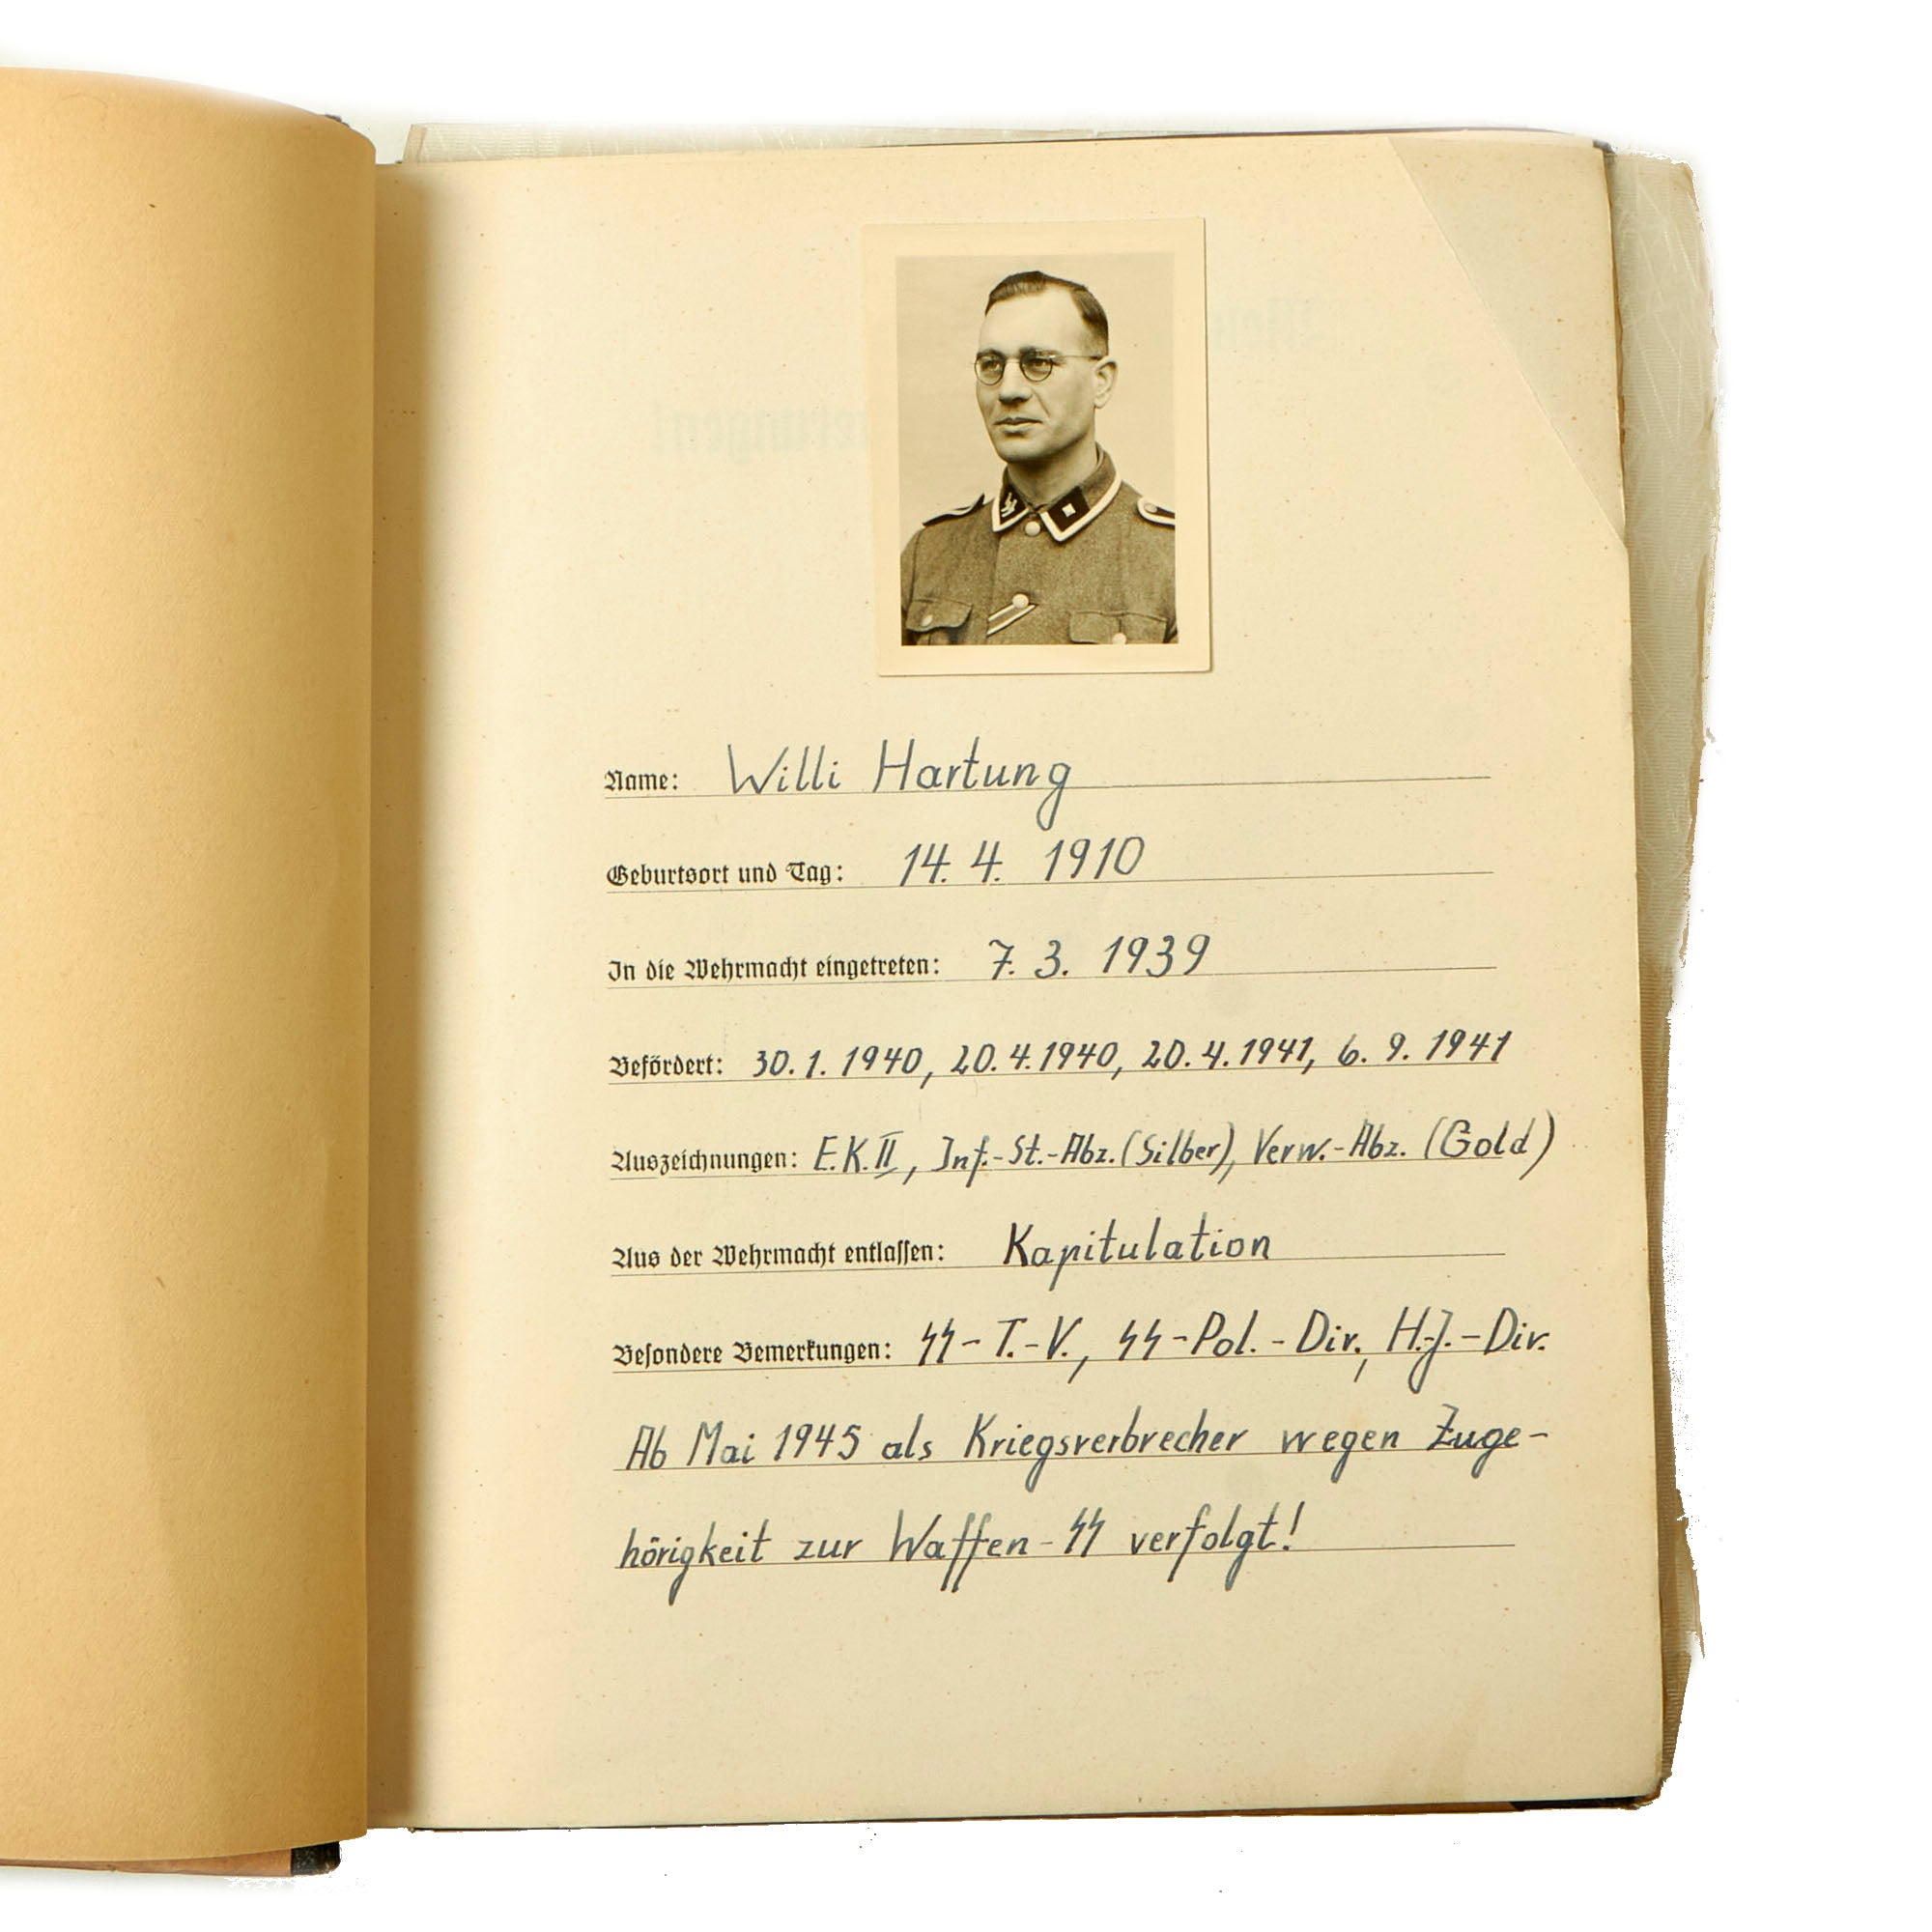 Name: Willi Hartung
Geburtsort und Tag: 14. 4. 1910
In die Wehrmacht eingetreten: 7. 3. 1939
Befördert: 30. 1. 1940, 20. 4. 1940, 20. 4. 1941, 6. 9. 1941
Auszeichnungen: E.K. II, Inf.-St.-Abz. (Silber), Verw.-Abz. (Gold)
Aus der Wehrmacht entlassen: Kapitulation
Besondere Bemerkungen: SS-T.-V., SS-Pol.-Div., H.J.-Div.
Ab Mai 1945 als Kriegsverbrecher wegen Zuge-
hörigkeit zur Waffen-SS verfolgt!